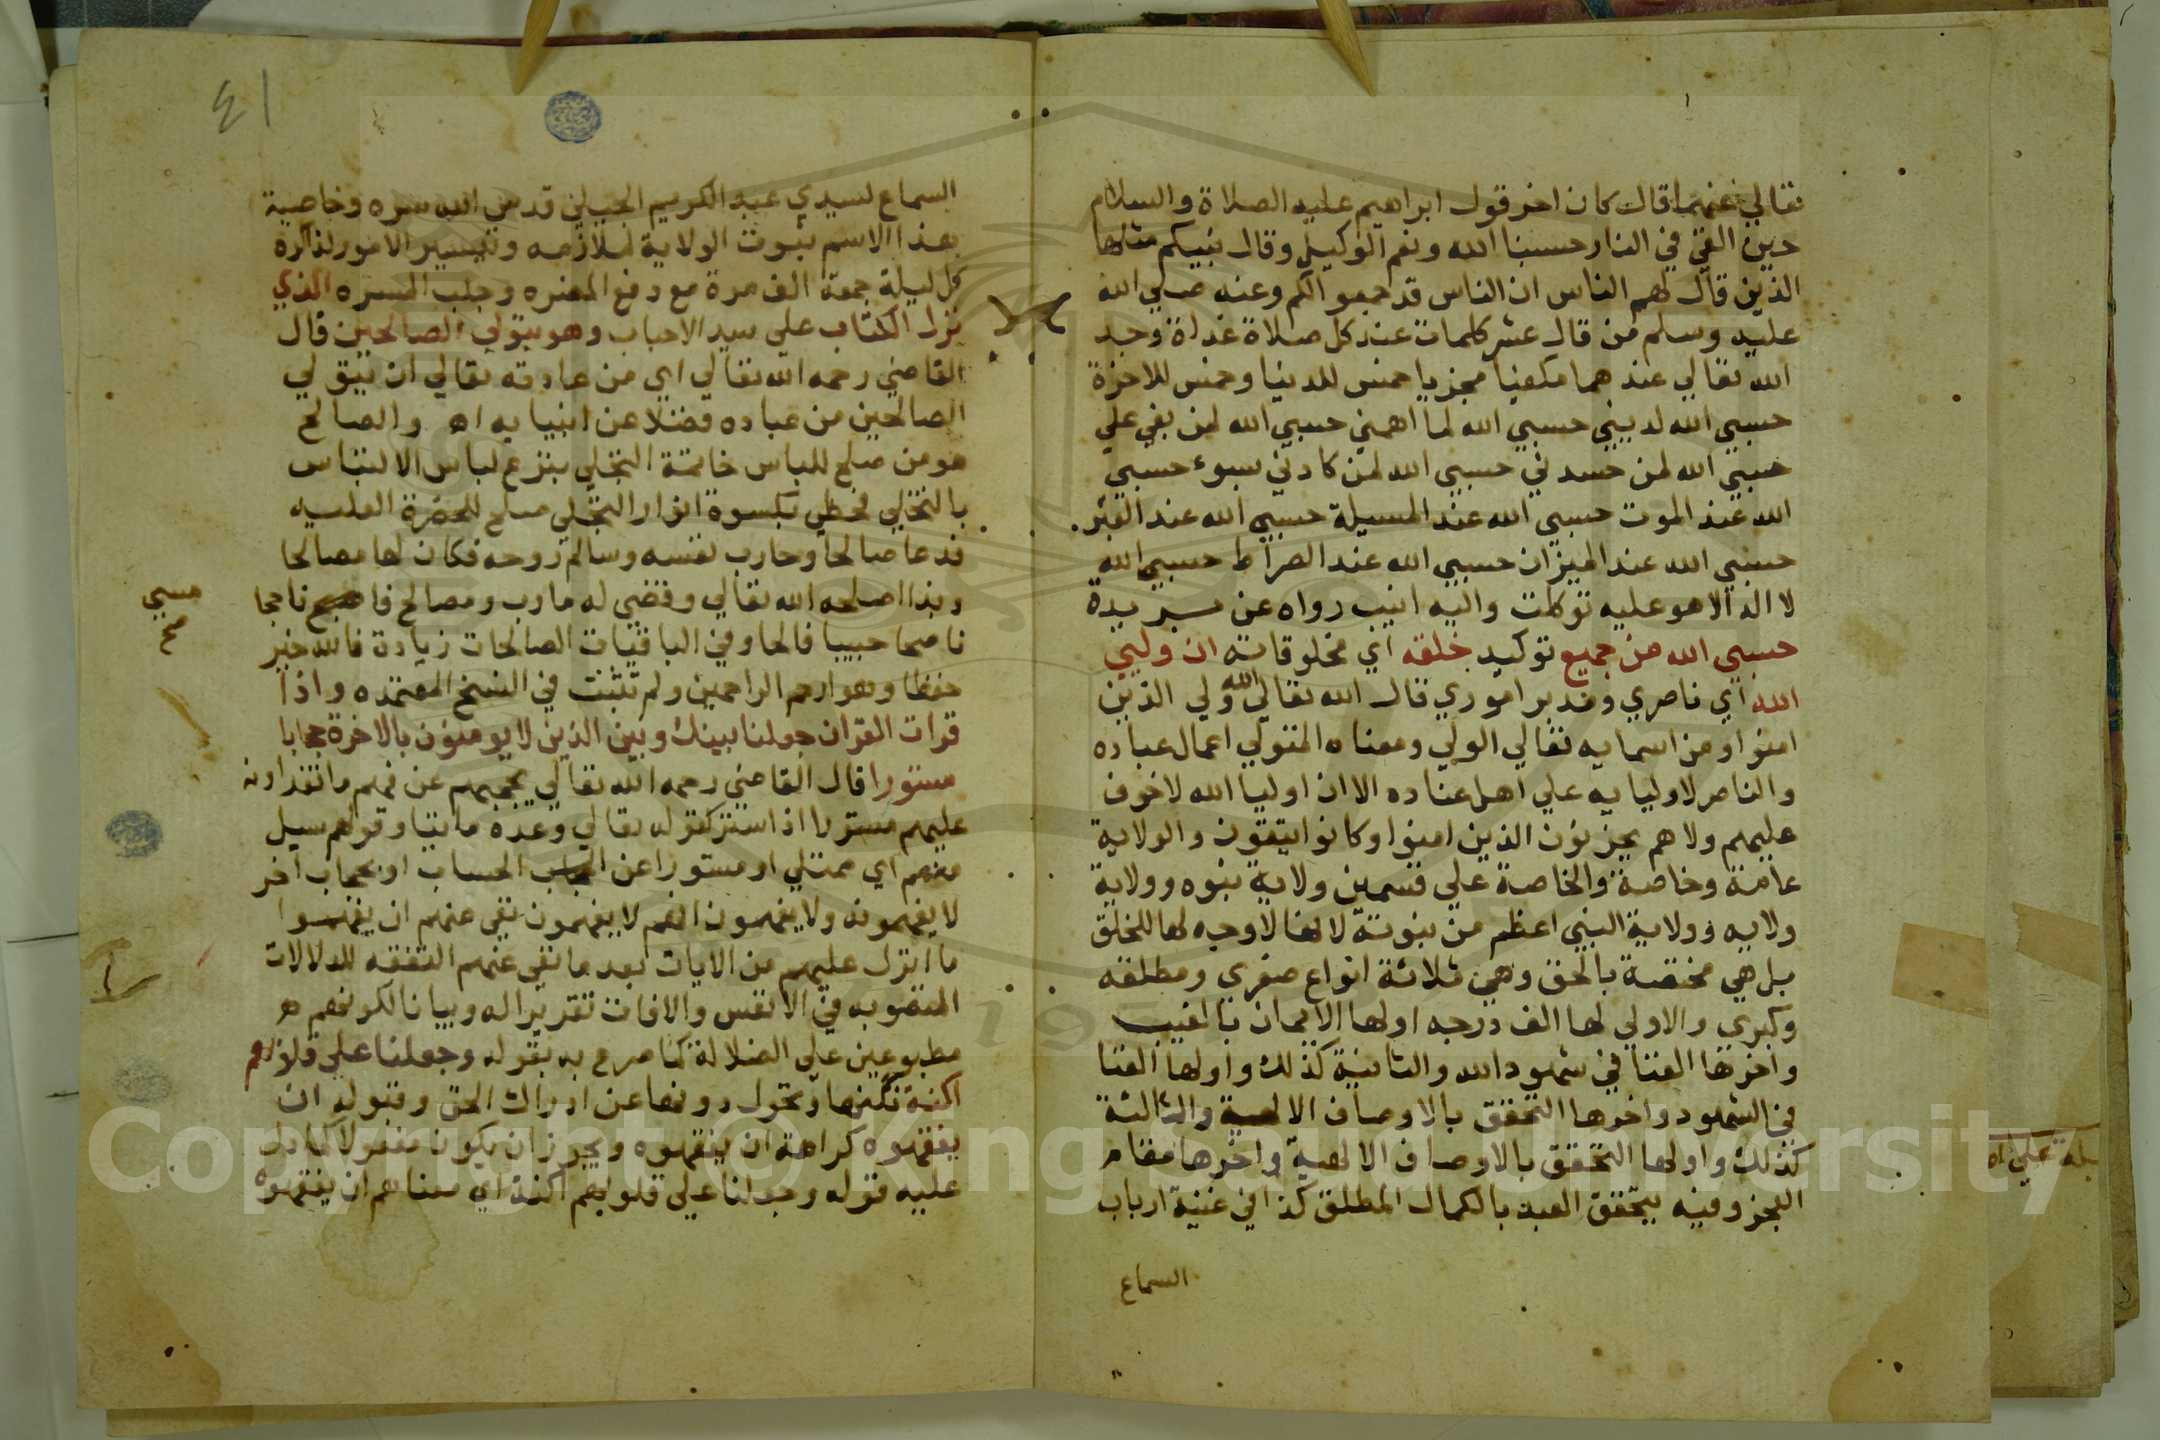 تعالي عنهما قال كان اخر قول ابراهيم عليه الصلاة والسلام
حين القي في النار حسبنا الله ونعم الوكيل وقال نبيكم مثلها
الذين قال لهم الناس ان الناس قد جمعوا لكم وعنه صلي الله
عليه وسلم من قال عشر كلمات عند كل صلاة غداة وجد
الله تعالي عندهما مكفيا مجزيا خمس للدنيا وخمس للاخرة
حسبي الله لديني حسبي الله لما اهمني حسبي الله لمن بغي علي
حسبي الله لمن حسدني حسبي الله لمن كادني بسوء حسبي
الله عند الموت حسبي الله عند المسيلة حسبي الله عند القبر
حسبي الله عند الميزان حسبي الله عند الصراط حسبي الله
لا اله الا هو عليه توكلت واليه انيب رواه عن بريدة
حسبي الله من جميع توكيد خلقه اي مخلوقاته ان وليي
الله اي ناصري ومدبر اموري قال الله تعالي الله ولي الذين
امنوا ومن اسمايه تعالي الولي ومعناه المتولي اعمال عباده
والناصر لاوليايه علي اهل عناده الا ان اوليا الله لا خوف
عليهم ولا هم يحزنون الذين امنوا وكانوا يتقون والولاية
عامة وخاصة والخاصة علي قسمين ولاية نبوه وولاية
ولايه وولاية النبي اعظم من نبوته لانها لا وجه لها للخلق
بل هي مختصة بالحق وهي ثلاثة انواع صغري ومطلقه
وكبري والاولي لها الف درجه اولها الايمان بالغيب
واخرها الفنا في شهود الله والثانية كذلك واولها الفنا
في الشهود واخرها التحقق بالاوصاف الالهية والثالثة
كذلك واولها التحقق بالاوصاف الالهية واخرها مقام
العجز وفيه يتحقق العبد بالكمال المطلق كذا في غنية ارباب
السماع
٤١
السماع لسيدي عبد الكريم الجيلي قدس الله سره وخاصية
هذا الاسم ثبوت الولاية لملازمه وتيسير الامور لذاكره
كل ليلة جمعة الف مرة مع دفع المضره وجلب المسره الذي
نزل الكتاب علي سيد الاحباب وهو يتولي الصالحين قال
القاضي رحمه الله تعالي اي من عادته تعالي ان يتولي
الصالحين من عباده فضلا عن انبيايه اه والصالح
هو من صلح للباس خاتمة التجلي بنزع لباس الالتباس
بالتخلي فحظي بكسوة انوار التجلي صلح للحضرة العلسيه
فدعا صالحا وحارب نفسه وسالم روحه فكان لها مصالحا
وبذا اصلحه الله تعالي وقضي له مارب ومصالح فاصبح ناجحا
ناصحا حبيبا فالحا وفي الباقيات الصالحات زيادة فالله خير
حفظا وهو ارحم الراحمين ولم تثبت في النسخ المعتمده واذا
قرات القران جعلنا بينك وبين الذين لا يومنون بالاخرة حجابا
مستورا قال القاضي رحمه الله تعالي يحجبهم عن فهم ما تقراونه
عليهم مستورا اذا ستر كقوله تعالي وعده ماتيا وقولهم سيل
مفعم اي ممتلي او مستورا عن الحساب او بحجاب اخر
لا يفهمونه ولا يفهمون انهم لا يفهمون نفي عنهم ان يفهموا
ما انزل عليهم من الايات بعد ما نفي عنهم التفقه للدلالات
المنصوبه في الانفس والافات تقريرا له وبيانا لكونهم
مطبوعين علي الضلالة كما صرح به بقوله وجعلنا علي قلوبهم
اكنة تكنها وتحول دونها عن ادراك الحق وقبوله ان
يفقهوه كراهة ان يفقهوه ويجوز ان يكون مفعولا لما دل
عليه قوله وجعلنا علي قلوبهم اكنة اي منعناهم ان يفقهوه
حسبي
صح
Copyright © King Saud University